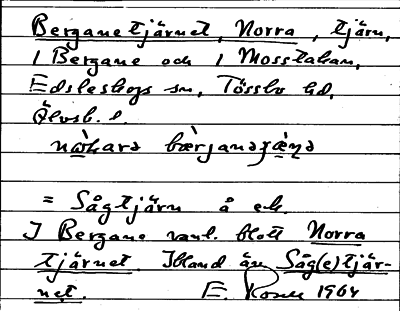 Berganetjärnet, Norra, tjärn,
i Bergane och i Mosstakan,
Edsleskogs sn, Tössbo hd,
Älvsb. l.
= Sågtjärn å ek.
I Bergane vanl. blott Norra
tjärnet Ibland äv. Såg(e)tjär-
net. E. 1964